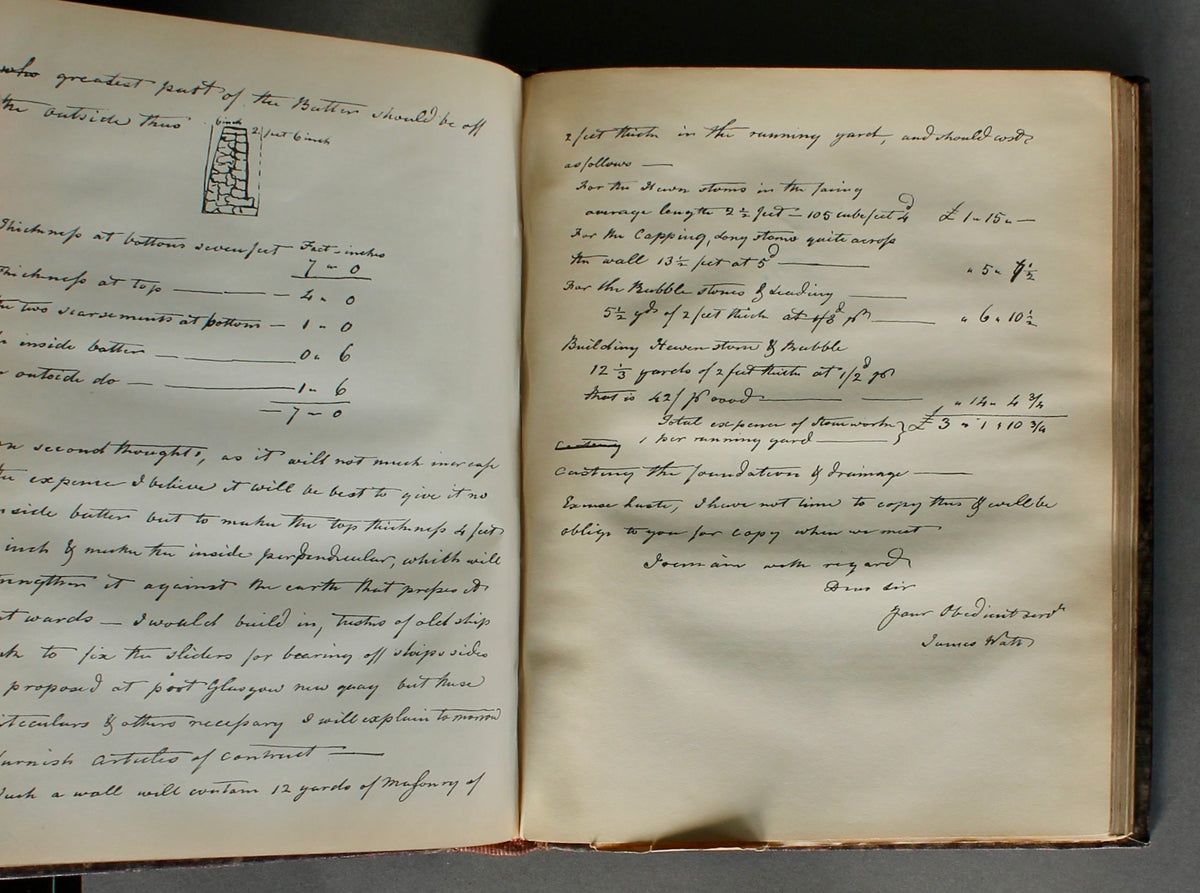 who greatest part of the Batter should be off
the outside thus
6 inch
2 feet 6 inch
Thickness at bottom seven feet Feet - inches
7 " 0
Thickness at top — 4 " 0
two scarsements at bottom — 1 " 0
inside batter — 0 " 6
outside do — 1 " 6
— 7 " 0
second thoughts, as it will not much increase
the expence I believe it will be best to give it no
side batter but to make the top thickness 4 feet
inch & make the inside perpendicular, which will
strengthen it against the earth that presses it
wards — I would build in, of old ship
to fix the sliders for bearing off ships sides
proposed at port Glasgow new quay but these
particulars & others necessary I will explain to morrow
furnish articles of contract —
Such a wall will contain 12 yards of Masonry of
2 feet thick in the running yard, and should cost
as follows —
For the Hewn stones in the facing
average length 2 1/2 feet — 105 cube feet 4d £ 1 " 15 " —
For the Capping, Long stones quite across
the wall 13 1/2 feet at 5d — " 5 " 7 1/2
For the Rubble stones & Leading —
5 1/2 yds of 2 feet thick at — " 6 " 10 1/2
Building Hewen stone & Rubble
12 1/3 yards of 2 feet thick at 1/2d
that is 42/ rood — " 14 " 4 3/4
Total expence of stonework £ 3 " 1 " 10 3/4
1 per running yard —
Casting the foundation & drainage —
Excuse haste, I have not time to copy this & will be
oblige to you for copy when we meet
I remain with regard
Dear Sir
Your Obedient servt
James Watt